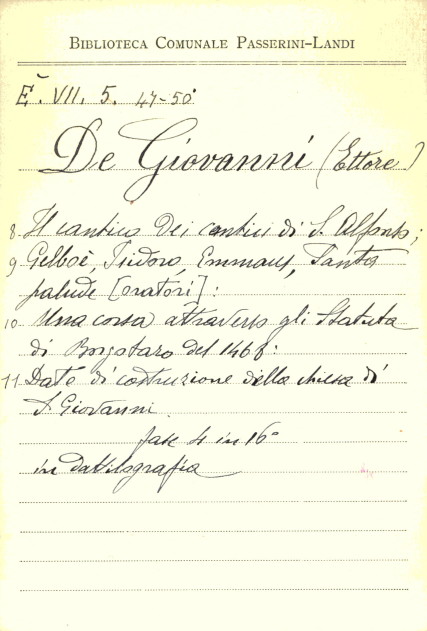 BIBLIOTECA COMUNALE PASSERINI-LANDI
Ě. VII. 5. 47-50
De Giovanni (Ettore)
8 Il cantico dei cantici di S. Alfonso;
9 Gelboè, Isidoro, Emmaus, Santa
palude [oratori]:
10 Una corsa attraverso gli Statuta
di Borgotaro del 1466:
11 Date di costruzione della chiesa di
S. Giovanni.
fasc 4 in 16°
in dattilografia